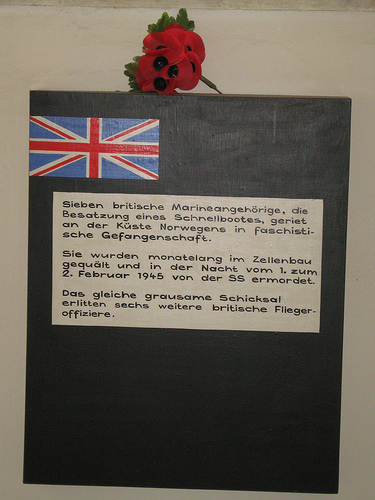 Sieben britische Marineangehörige, die
Besatzung eines Schnellbootes, geriet
an der Küste Norwegens in faschisti-
sche Gefangenschaft.
Sie wurden monatelang im Zellenbau
gequält und in der Nacht vom 1. zum
2. Februar 1945 von der SS ermordet.
Das gleiche grausame Schicksal
erlitten sechs weitere britische Flieger-
offiziere.